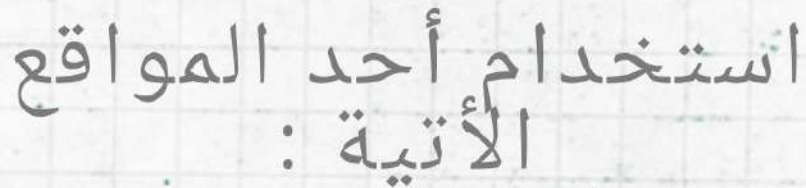 استخدام أحد المواقع
الأتية :